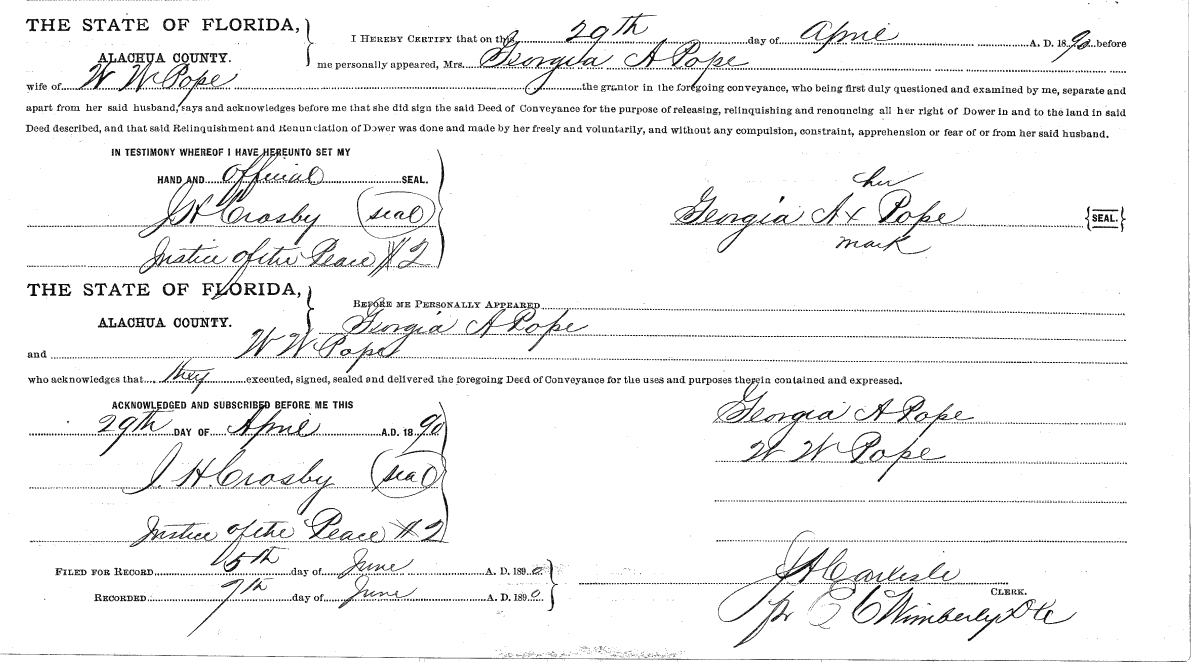 THE STATE OF FLORIDA,
ALACHUA COUNTY.
I HEREBY CERTIFY that on this 29th day of April A. D. 1890 before
me personally appeared, Mrs. Georgia A Pope
wife of W W Pope the grantor in the foregoing conveyance, who being first duly questioned and examined by me, separate and
apart from her said husband, says and acknowledges before me that she did sign the said Deed of Conveyance for the purpose of releasing, relinquishing and renouncing all her right of Dower in and to the land in said
Deed described, and that said Relinquishment and Renunciation of Dower was done and made by her freely and voluntarily, and without any compulsion, constraint, apprehension or fear of or from her said husband.
IN TESTIMONY WHEREOF I HAVE HEREUNTO SET MY
HAND AND official SEAL.
J H Crosby (seal)
Justice of the Peace #2
her
Georgia A x Pope {SEAL.}
mark
THE STATE OF FLORIDA,
ALACHUA COUNTY.
BEFORE ME PERSONALLY APPEARED
Georgia A Pope
and W W Pope
who acknowledges that they executed, signed, sealed and delivered the foregoing Deed of Conveyance for the uses and purposes therein contained and expressed.
ACKNOWLEDGED AND SUBSCRIBED BEFORE ME THIS
29th DAY OF April A.D. 1890
J. H. Crosby (seal)
Justice of the Peace #2
Georgia A Pope
W W Pope
FILED FOR RECORD 5th day of June A. D. 1890
RECORDED 7th day of June A. D. 1890
J A Carlisle
CLERK.
pr E C Wimberly D C